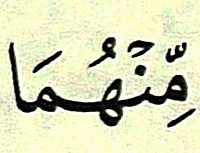 مِّنۡهُمَا